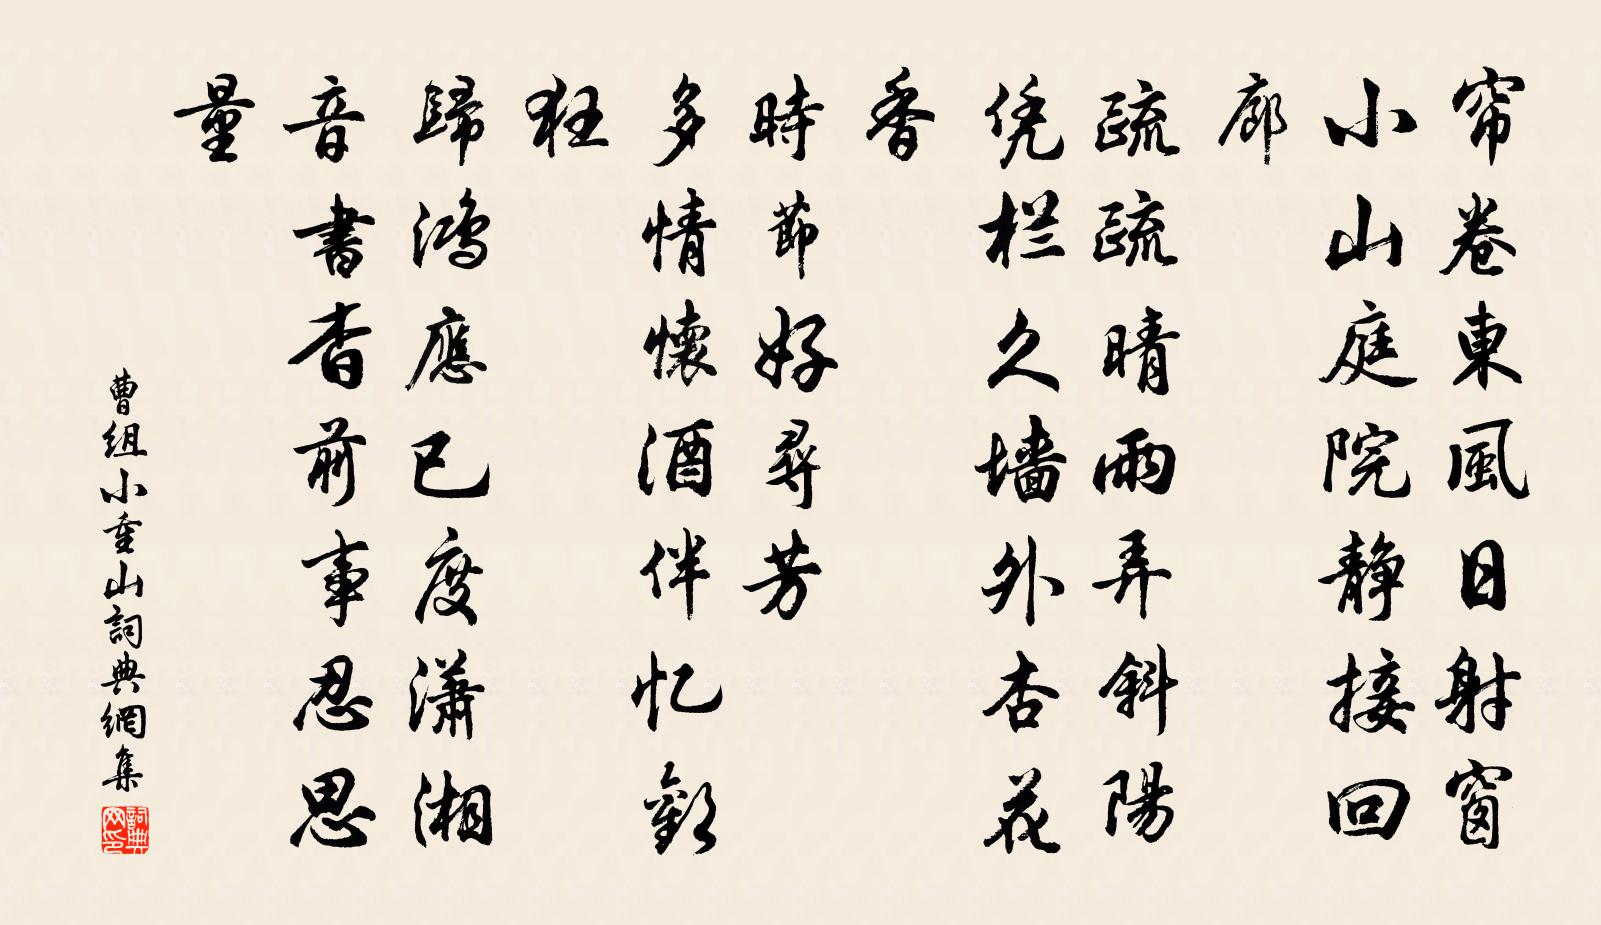 帘卷東風日射窗
小山庭院静接回
廊
疏疏晴雨弄斜陽
凭栏久墙外杏花
香
時節好尋芳
多情懷酒伴忆歡
狂
歸鴻應已度瀟湘
音書杳前事忍思
量
曹组小重山詞典網集
詞典网印